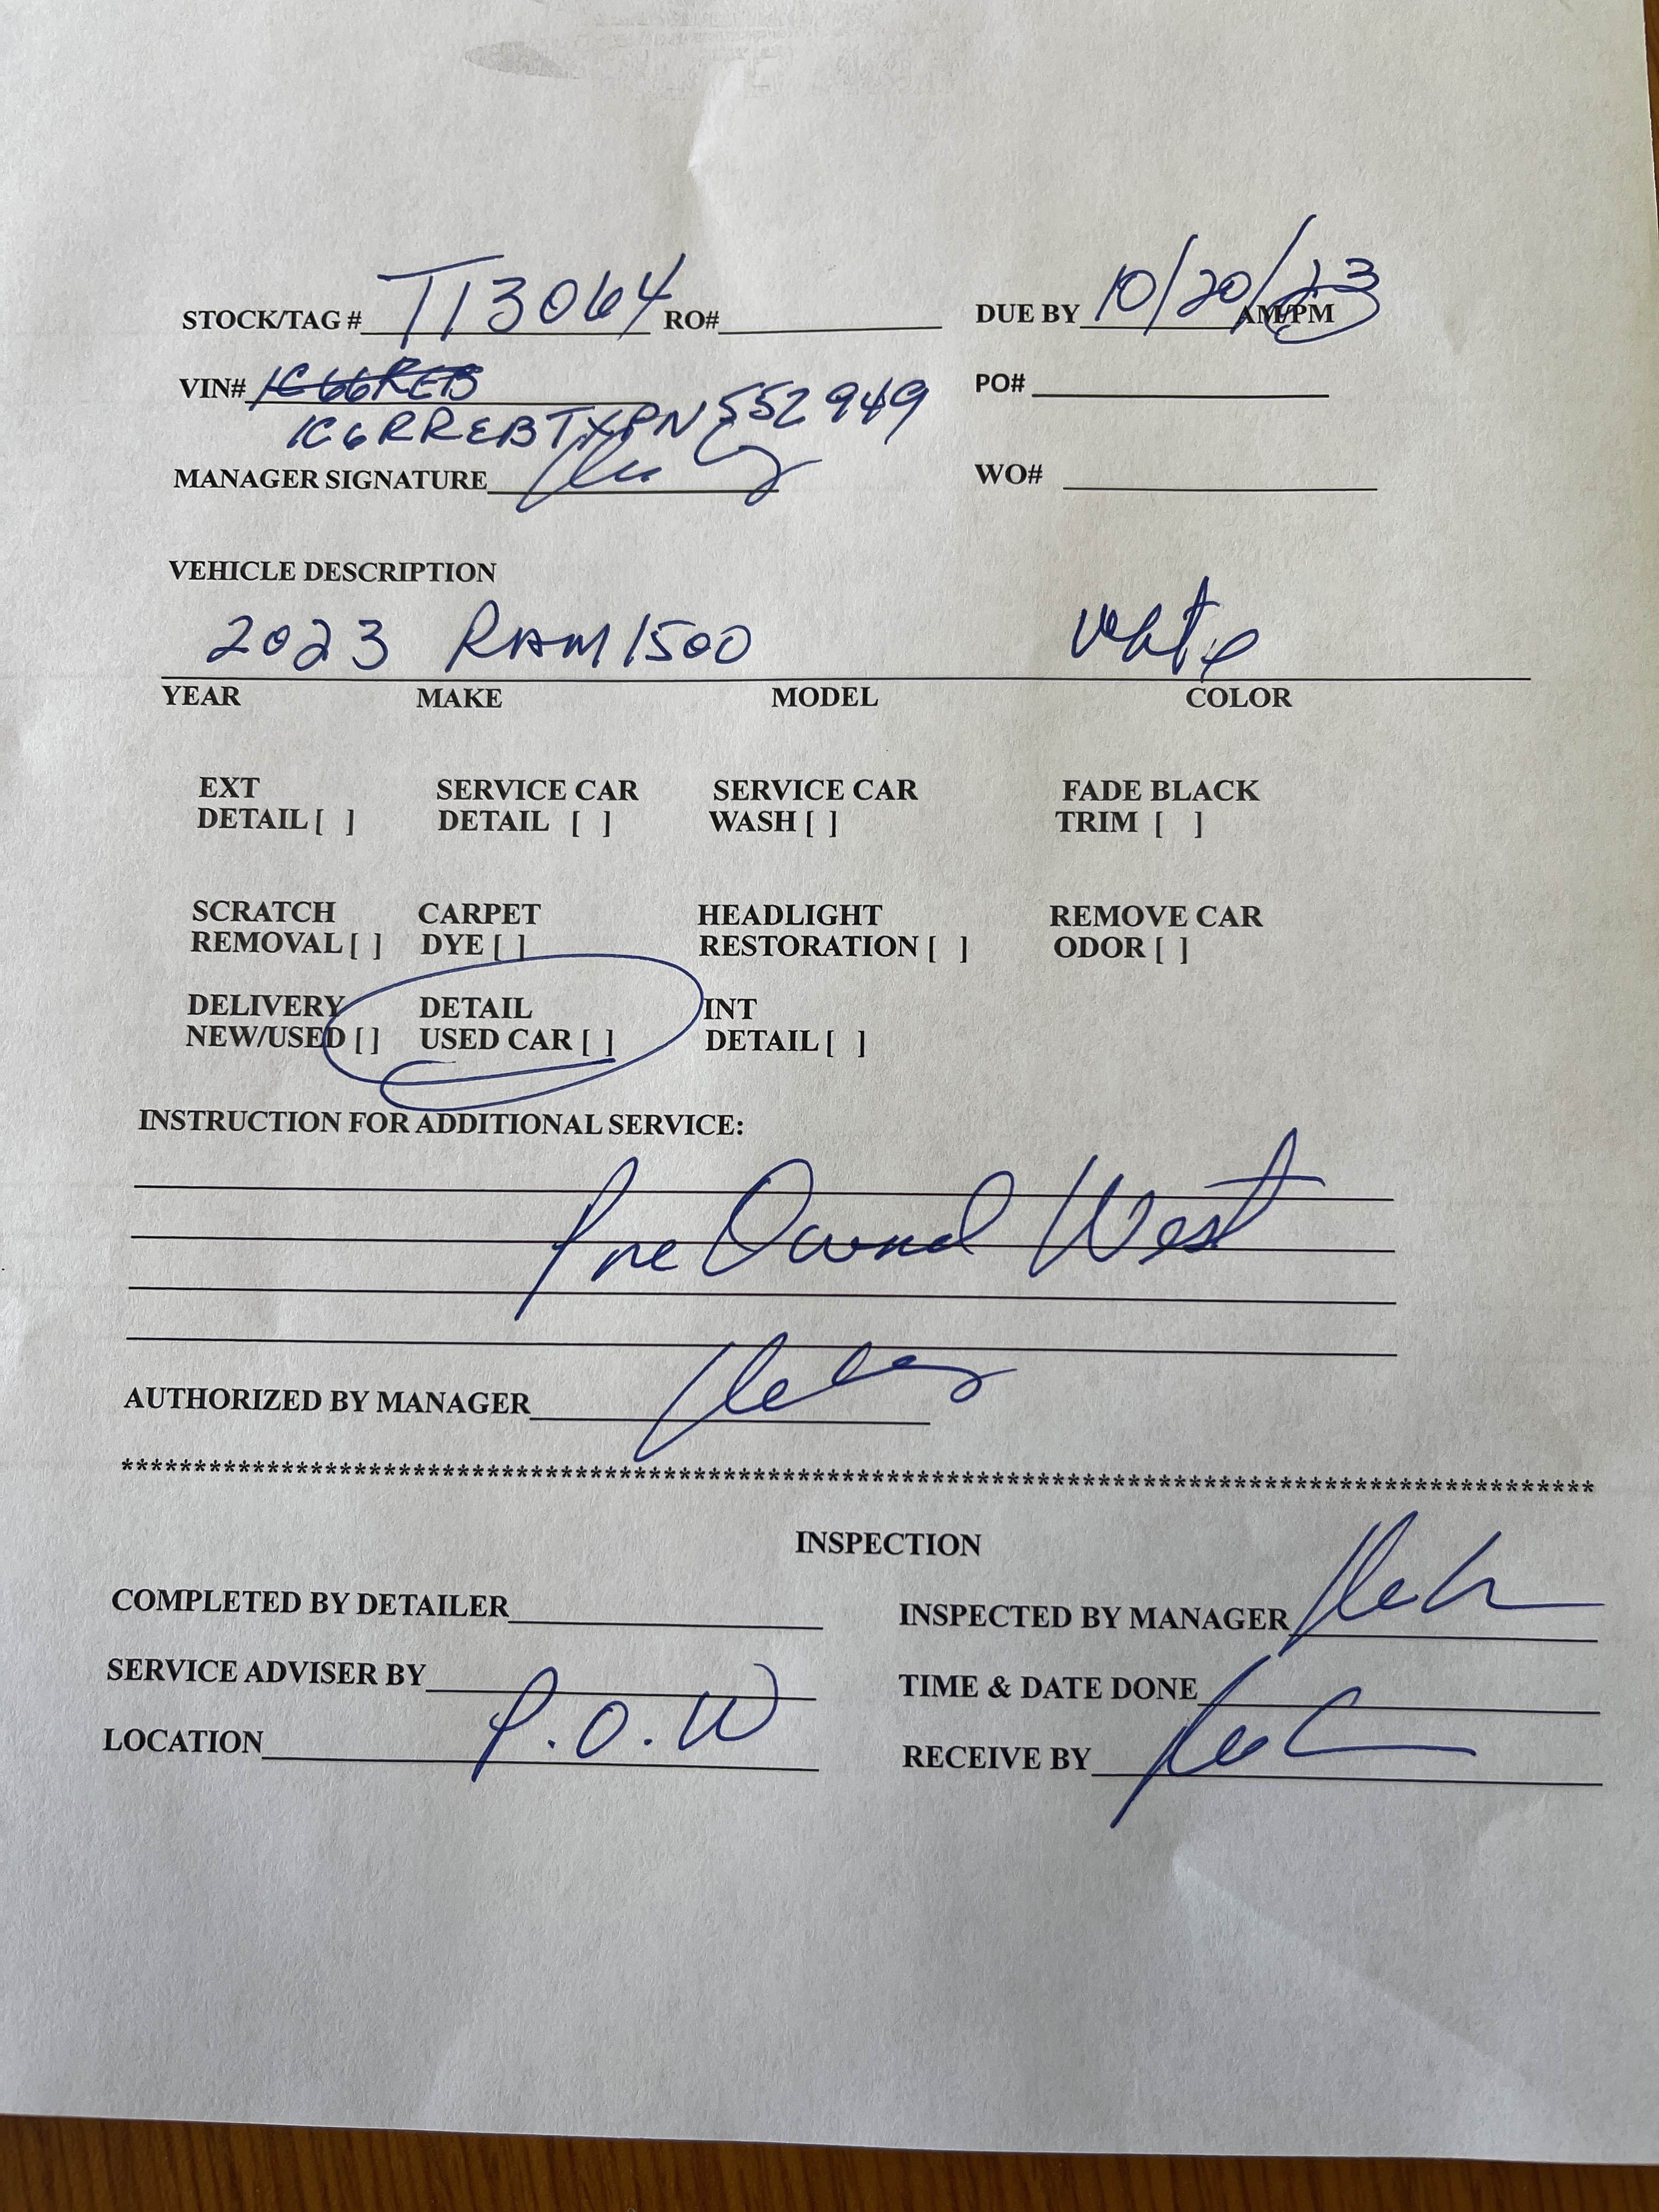 STOCK/TAG # T13064 RO# DUE BY 10/20/23 AM/PM
VIN# 1C66REB PO#
1C6RREBTXPN552949
MANAGER SIGNATURE WO#
VEHICLE DESCRIPTION
2023 RAM 1500 White
YEAR MAKE MODEL COLOR
EXT SERVICE CAR SERVICE CAR FADE BLACK
DETAIL [ ] DETAIL [ ] WASH [ ] TRIM [ ]
SCRATCH CARPET HEADLIGHT REMOVE CAR
REMOVAL [ ] DYE [ ] RESTORATION [ ] ODOR [ ]
DELIVERY DETAIL INT
NEW/USED [ ] USED CAR [ ] DETAIL [ ]
INSTRUCTION FOR ADDITIONAL SERVICE:
Pre Ownd West
AUTHORIZED BY MANAGER
****************************************************************************************************
INSPECTION
COMPLETED BY DETAILER INSPECTED BY MANAGER
SERVICE ADVISER BY TIME & DATE DONE
LOCATION P.O.W RECEIVE BY